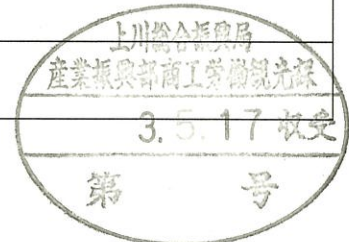 上川総合振興局
産業振興部商工労働観光課
3. 5. 17 収受
第 号